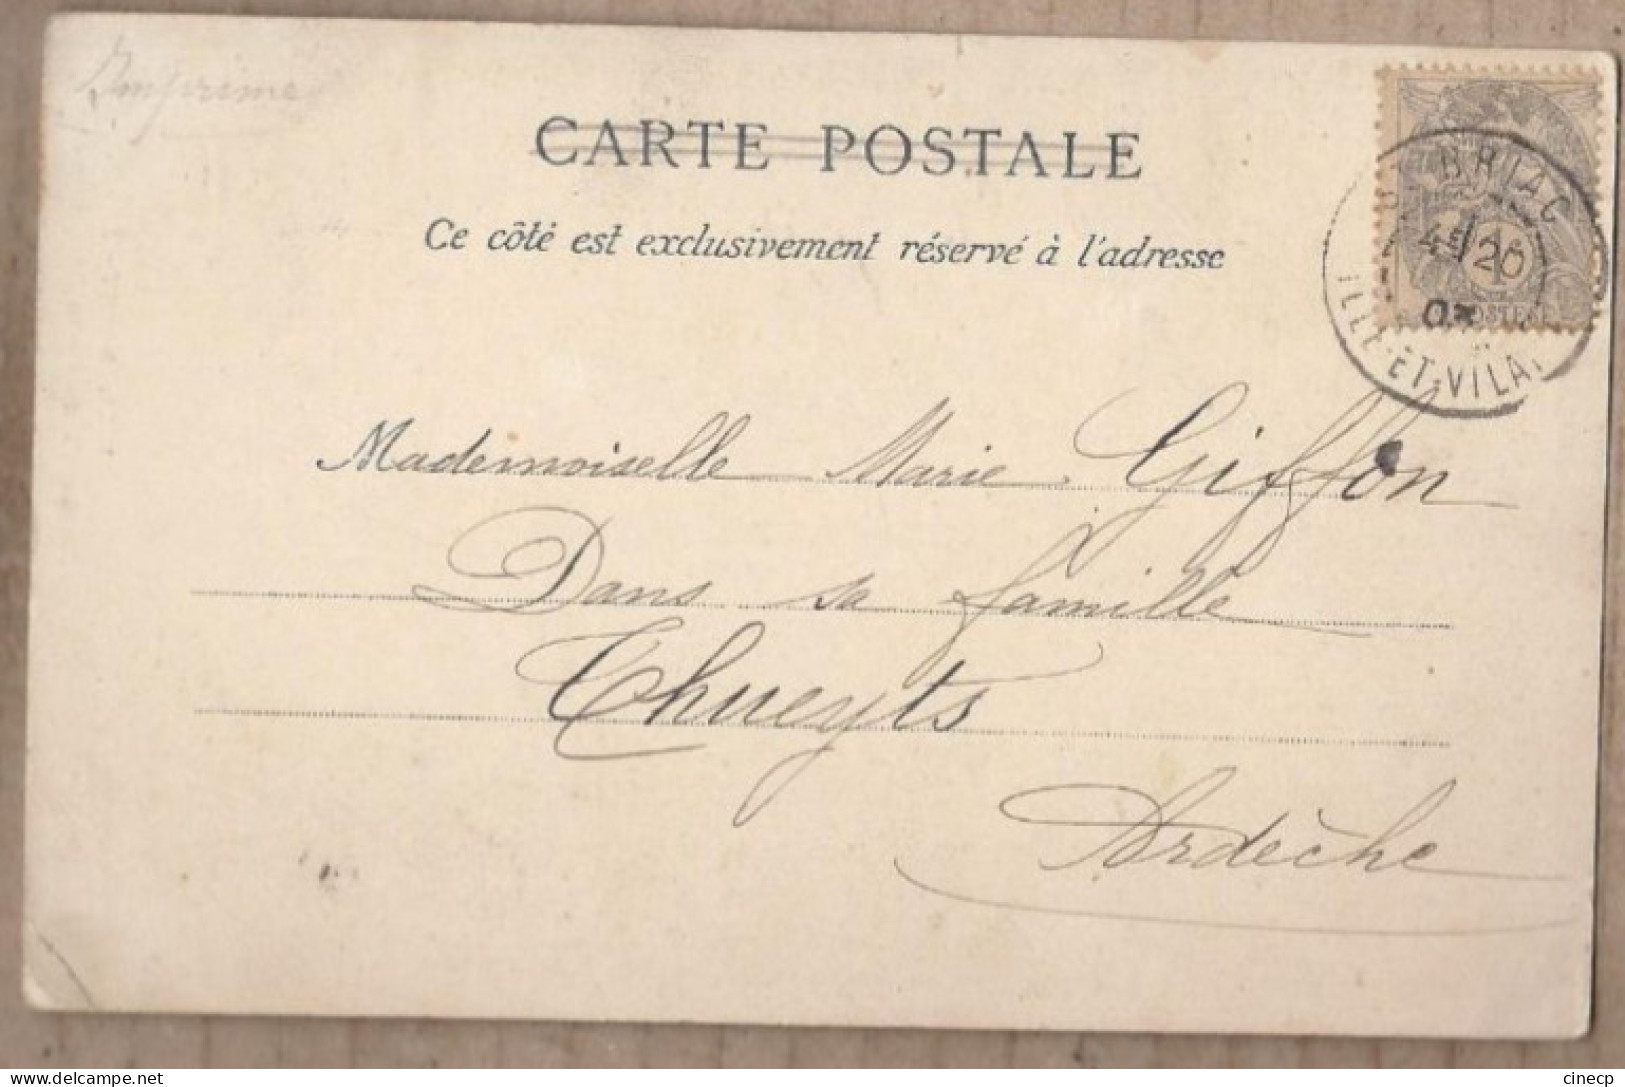 Imprimé
CARTE POSTALE
Ce côté est exclusivement réservé à l'adresse
BRIAC
4E/26
03
ILLE-ET-VILA
1
POSTES
Mademoiselle Marie Giffon
Dans sa famille
Thueyts
Ardèche
cinecp